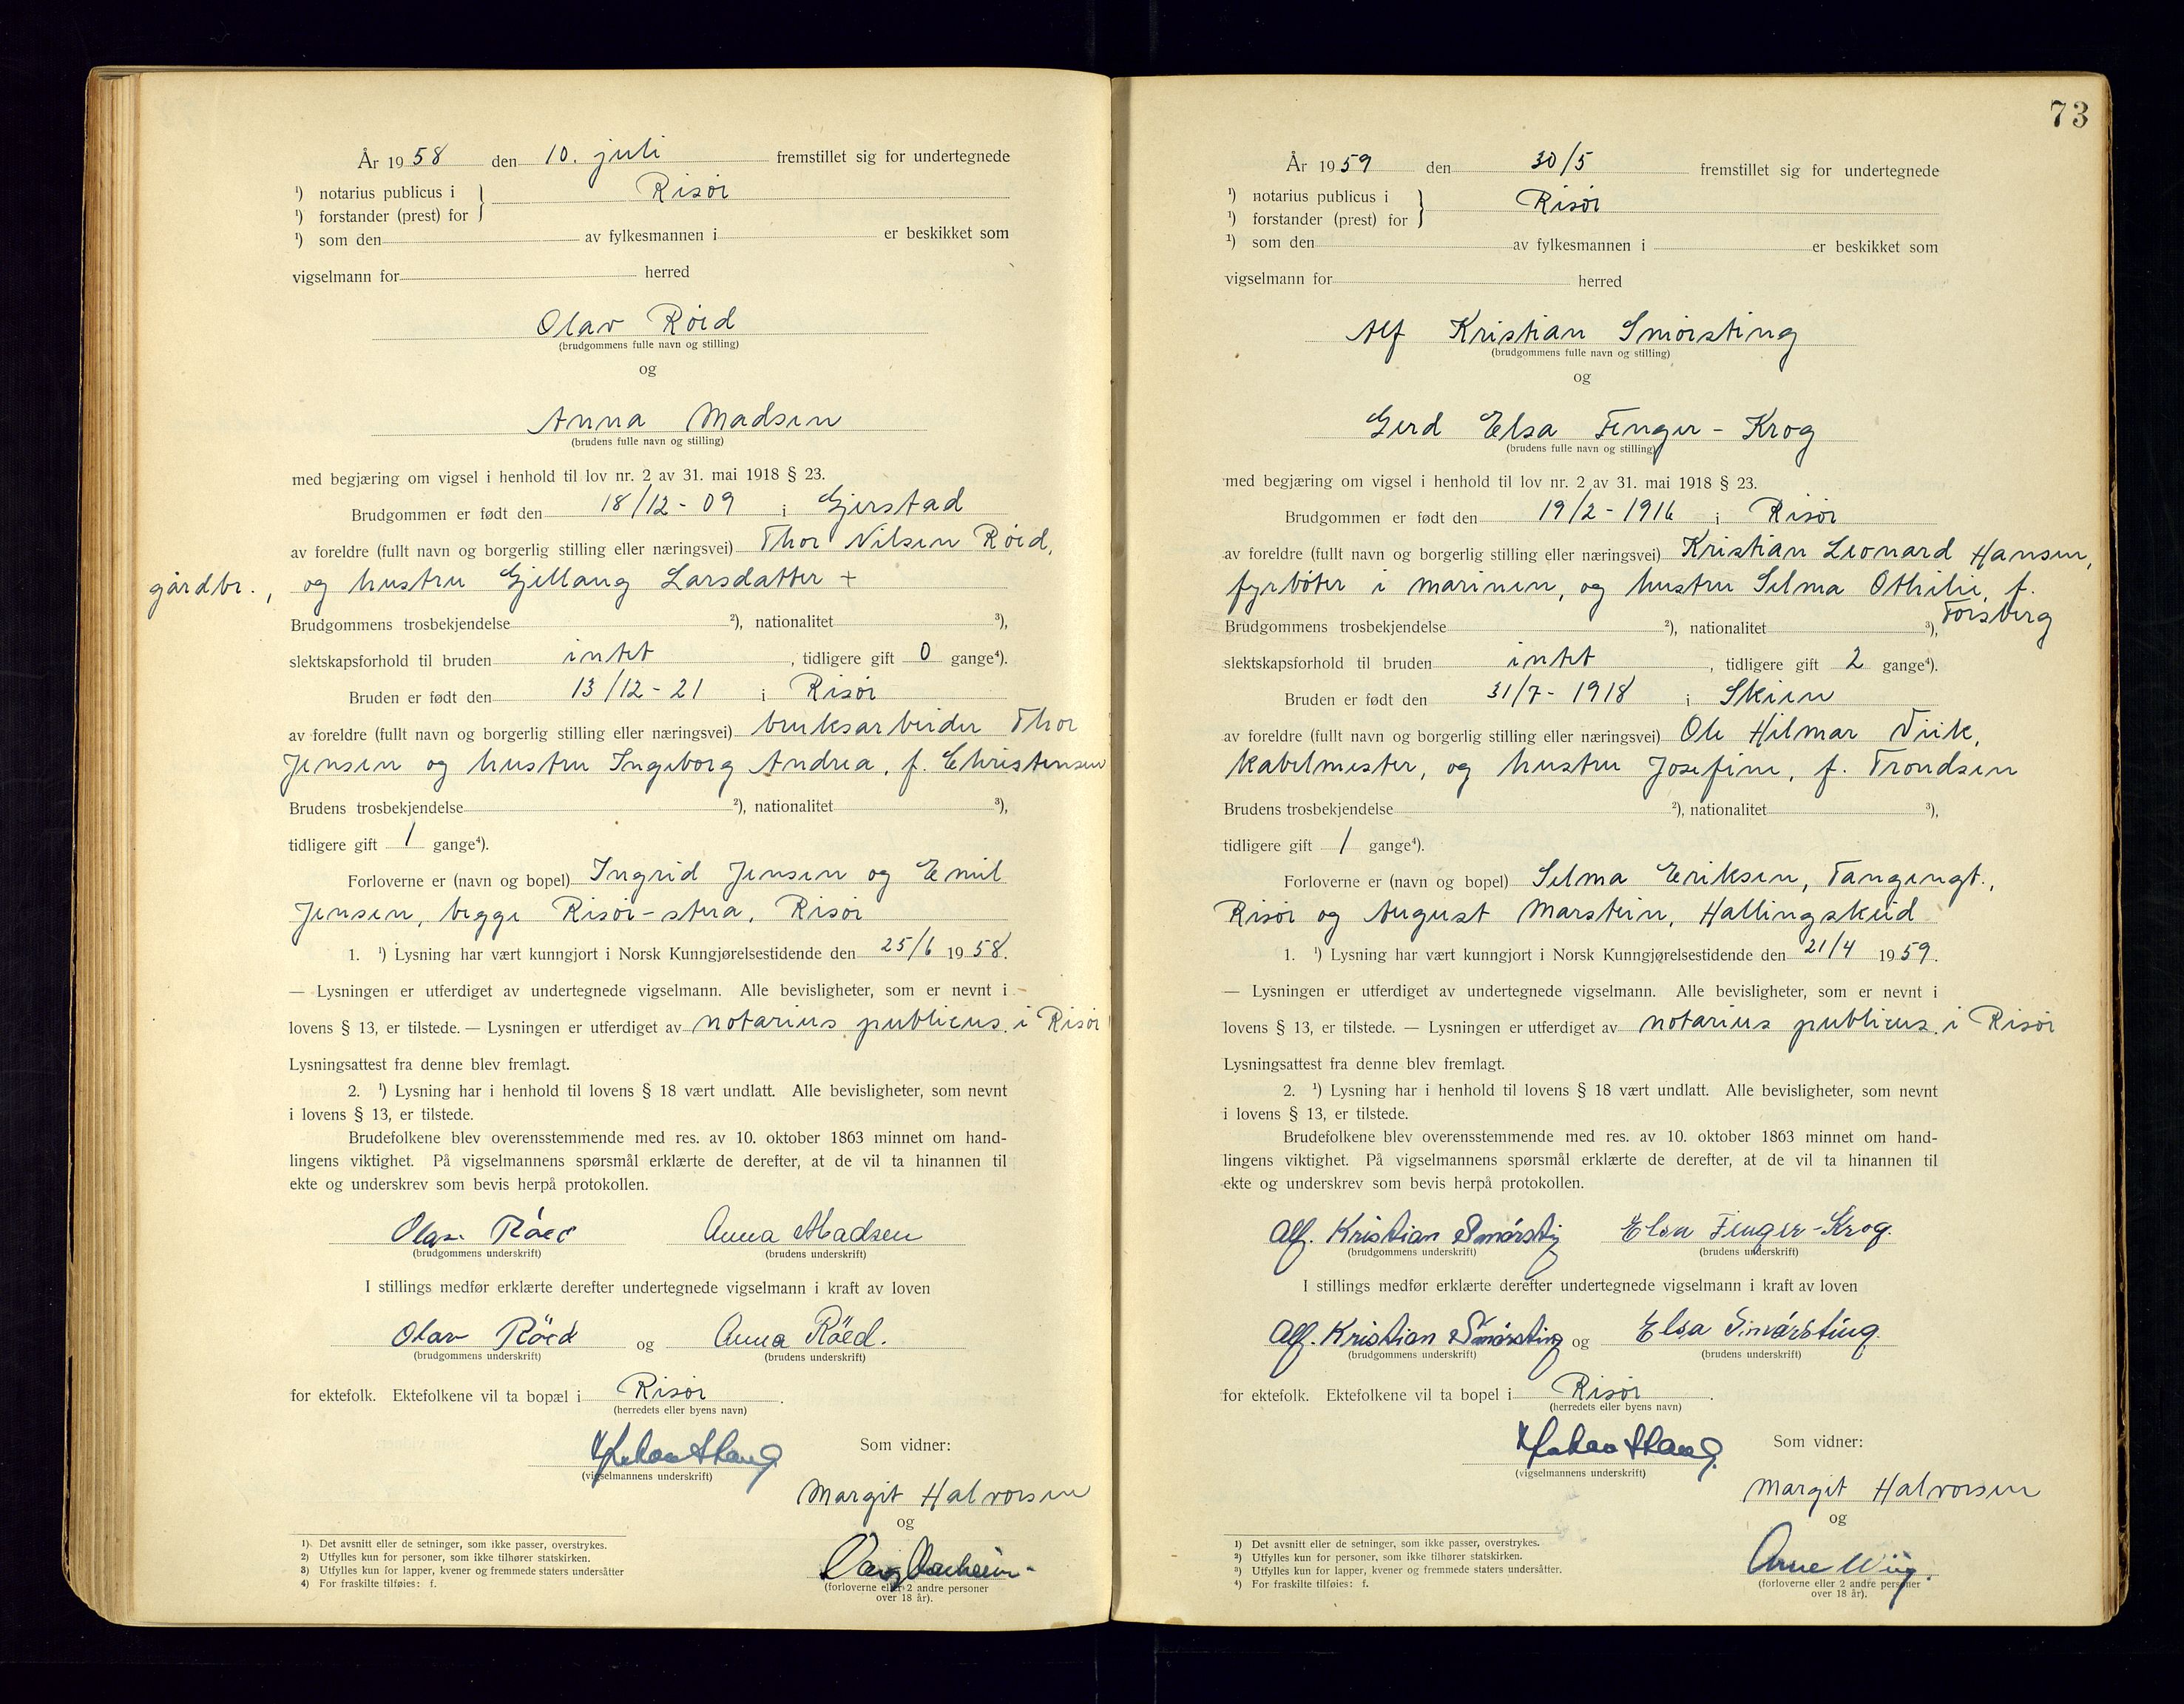 År 1958 den 10. juli fremstillet sig for undertegnede
¹) notarius publicus i } Risör
¹) forstander (prest) for
¹) som den av fylkesmannen i er beskikket som
vigselmann for herred
Olav Röed
(brudgommens fulle navn og stilling)
og
Anna Madsen
(brudens fulle navn og stilling)
med begjæring om vigsel i henhold til lov nr. 2 av 31. mai 1918 § 23.
Brudgommen er født den 18/12 - 09 i Gjerstad
av foreldre (fullt navn og borgerlig stilling eller næringsvei) Thor Nilsen Röed,
gårdbr., og hustru Gjellaug Larsdatter +
Brudgommens trosbekjendelse ²), nationalitet ³),
slektskapsforhold til bruden intet, tidligere gift 0 gange⁴).
Bruden er født den 13/12 - 21 i Risör
av foreldre (fullt navn og borgerlig stilling eller næringsvei) bruksarbeider Thor
Jensen og hustru Ingeborg Andrea, f. Christensen
Brudens trosbekjendelse ²), nationalitet ³),
tidligere gift 1 gange⁴).
Forloverne er (navn og bopel) Ingrid Jensen og Emil
Jensen, begge Risör-, Risör
1. ¹) Lysning har vært kunngjort i Norsk Kunngjørelsestidende den 25/6 1958.
— Lysningen er utferdiget av undertegnede vigselmann. Alle bevisligheter, som er nevnt i
lovens § 13, er tilstede. — Lysningen er utferdiget av notarius publicus i Risör
Lysningsattest fra denne blev fremlagt.
2. ¹) Lysning har i henhold til lovens § 18 vært undlatt. Alle bevisligheter, som nevnt
i lovens § 13, er tilstede.
Brudefolkene blev overensstemmende med res. av 10. oktober 1863 minnet om hand-
lingens viktighet. På vigselmannens spørsmål erklærte de derefter, at de vil ta hinannen til
ekte og underskrev som bevis herpå protokollen.
Olav Röed Anna Madsen
(brudgommens underskrift) (brudens underskrift)
I stillings medfør erklærte derefter undertegnede vigselmann i kraft av loven
Olav Röed og Anna Röed.
(brudgommens underskrift) (brudens underskrift)
for ektefolk. Ektefolkene vil ta bopæl i Risör.
(herredets eller byens navn)
Som vidner:
(vigselmannens underskrift)
Margit Halvorsen
og
(forloverne eller 2 andre personer
over 18 år).
1) Det avsnitt eller de setninger, som ikke passer, overstrykes.
2) Utfylles kun for personer, som ikke tilhører statskirken.
3) Utfylles kun for lapper, kvener og fremmede staters undersåtter
4) For fraskilte tilføies: f.
73
År 1959 den 30/5 fremstillet sig for undertegnede
¹) notarius publicus i } Risör
¹) forstander (prest) for
¹) som den av fylkesmannen i er beskikket som
vigselmann for herred
Alf Kristian Smörsting
(brudgommens fulle navn og stilling)
og
Gerd Elsa Finger - Krog
(brudens fulle navn og stilling)
med begjæring om vigsel i henhold til lov nr. 2 av 31. mai 1918 § 23.
Brudgommen er født den 19/2 - 1916 i Risör
av foreldre (fullt navn og borgerlig stilling eller næringsvei) Kristian Leonard Hansen,
fyrböter i marinen, og hustru Selma Othilie, f.
Torsberg
Brudgommens trosbekjendelse ²), nationalitet ³),
slektskapsforhold til bruden intet, tidligere gift 2 gange⁴).
Bruden er født den 31/7 - 1918 i Skien
av foreldre (fullt navn og borgerlig stilling eller næringsvei) Ole Hilmar Viik,
kabelmester, og hustru Josefine, f. Trondsen
Brudens trosbekjendelse ²), nationalitet ³),
tidligere gift 1 gange⁴).
Forloverne er (navn og bopel) Selma Eriksen, Tangengt.,
Risör og August Marstein, Hallingskeid
1. ¹) Lysning har vært kunngjort i Norsk Kunngjørelsestidende den 21/4 1959.
— Lysningen er utferdiget av undertegnede vigselmann. Alle bevisligheter, som er nevnt i
lovens § 13, er tilstede. — Lysningen er utferdiget av notarius publicus i Risör
Lysningsattest fra denne blev fremlagt.
2. ¹) Lysning har i henhold til lovens § 18 vært undlatt. Alle bevisligheter, som nevnt
i lovens § 13, er tilstede.
Brudefolkene blev overensstemmende med res. av 10. oktober 1863 minnet om hand-
lingens viktighet. På vigselmannens spørsmål erklærte de derefter, at de vil ta hinannen til
ekte og underskrev som bevis herpå protokollen.
Alf. Kristian Smörsting Elsa Finger-Krog.
(brudgommens underskrift) (brudens underskrift)
I stillings medfør erklærte derefter undertegnede vigselmann i kraft av loven
Alf. Kristian Smörsting og Elsa Smörsting.
(brudgommens underskrift) (brudens underskrift)
for ektefolk. Ektefolkene vil ta bopel i Risör.
(herredets eller byens navn)
Som vidner:
(vigselmannens underskrift)
Margit Halvorsen
og
Arne Wiig.
(forloverne eller 2 andre personer
over 18 år).
1) Det avsnitt eller de setninger, som ikke passer, overstrykes.
2) Utfylles kun for personer, som ikke tilhører statskirken.
3) Utfylles kun for lapper, kvener og fremmede staters undersåtter.
4) For fraskilte tilføies: f.